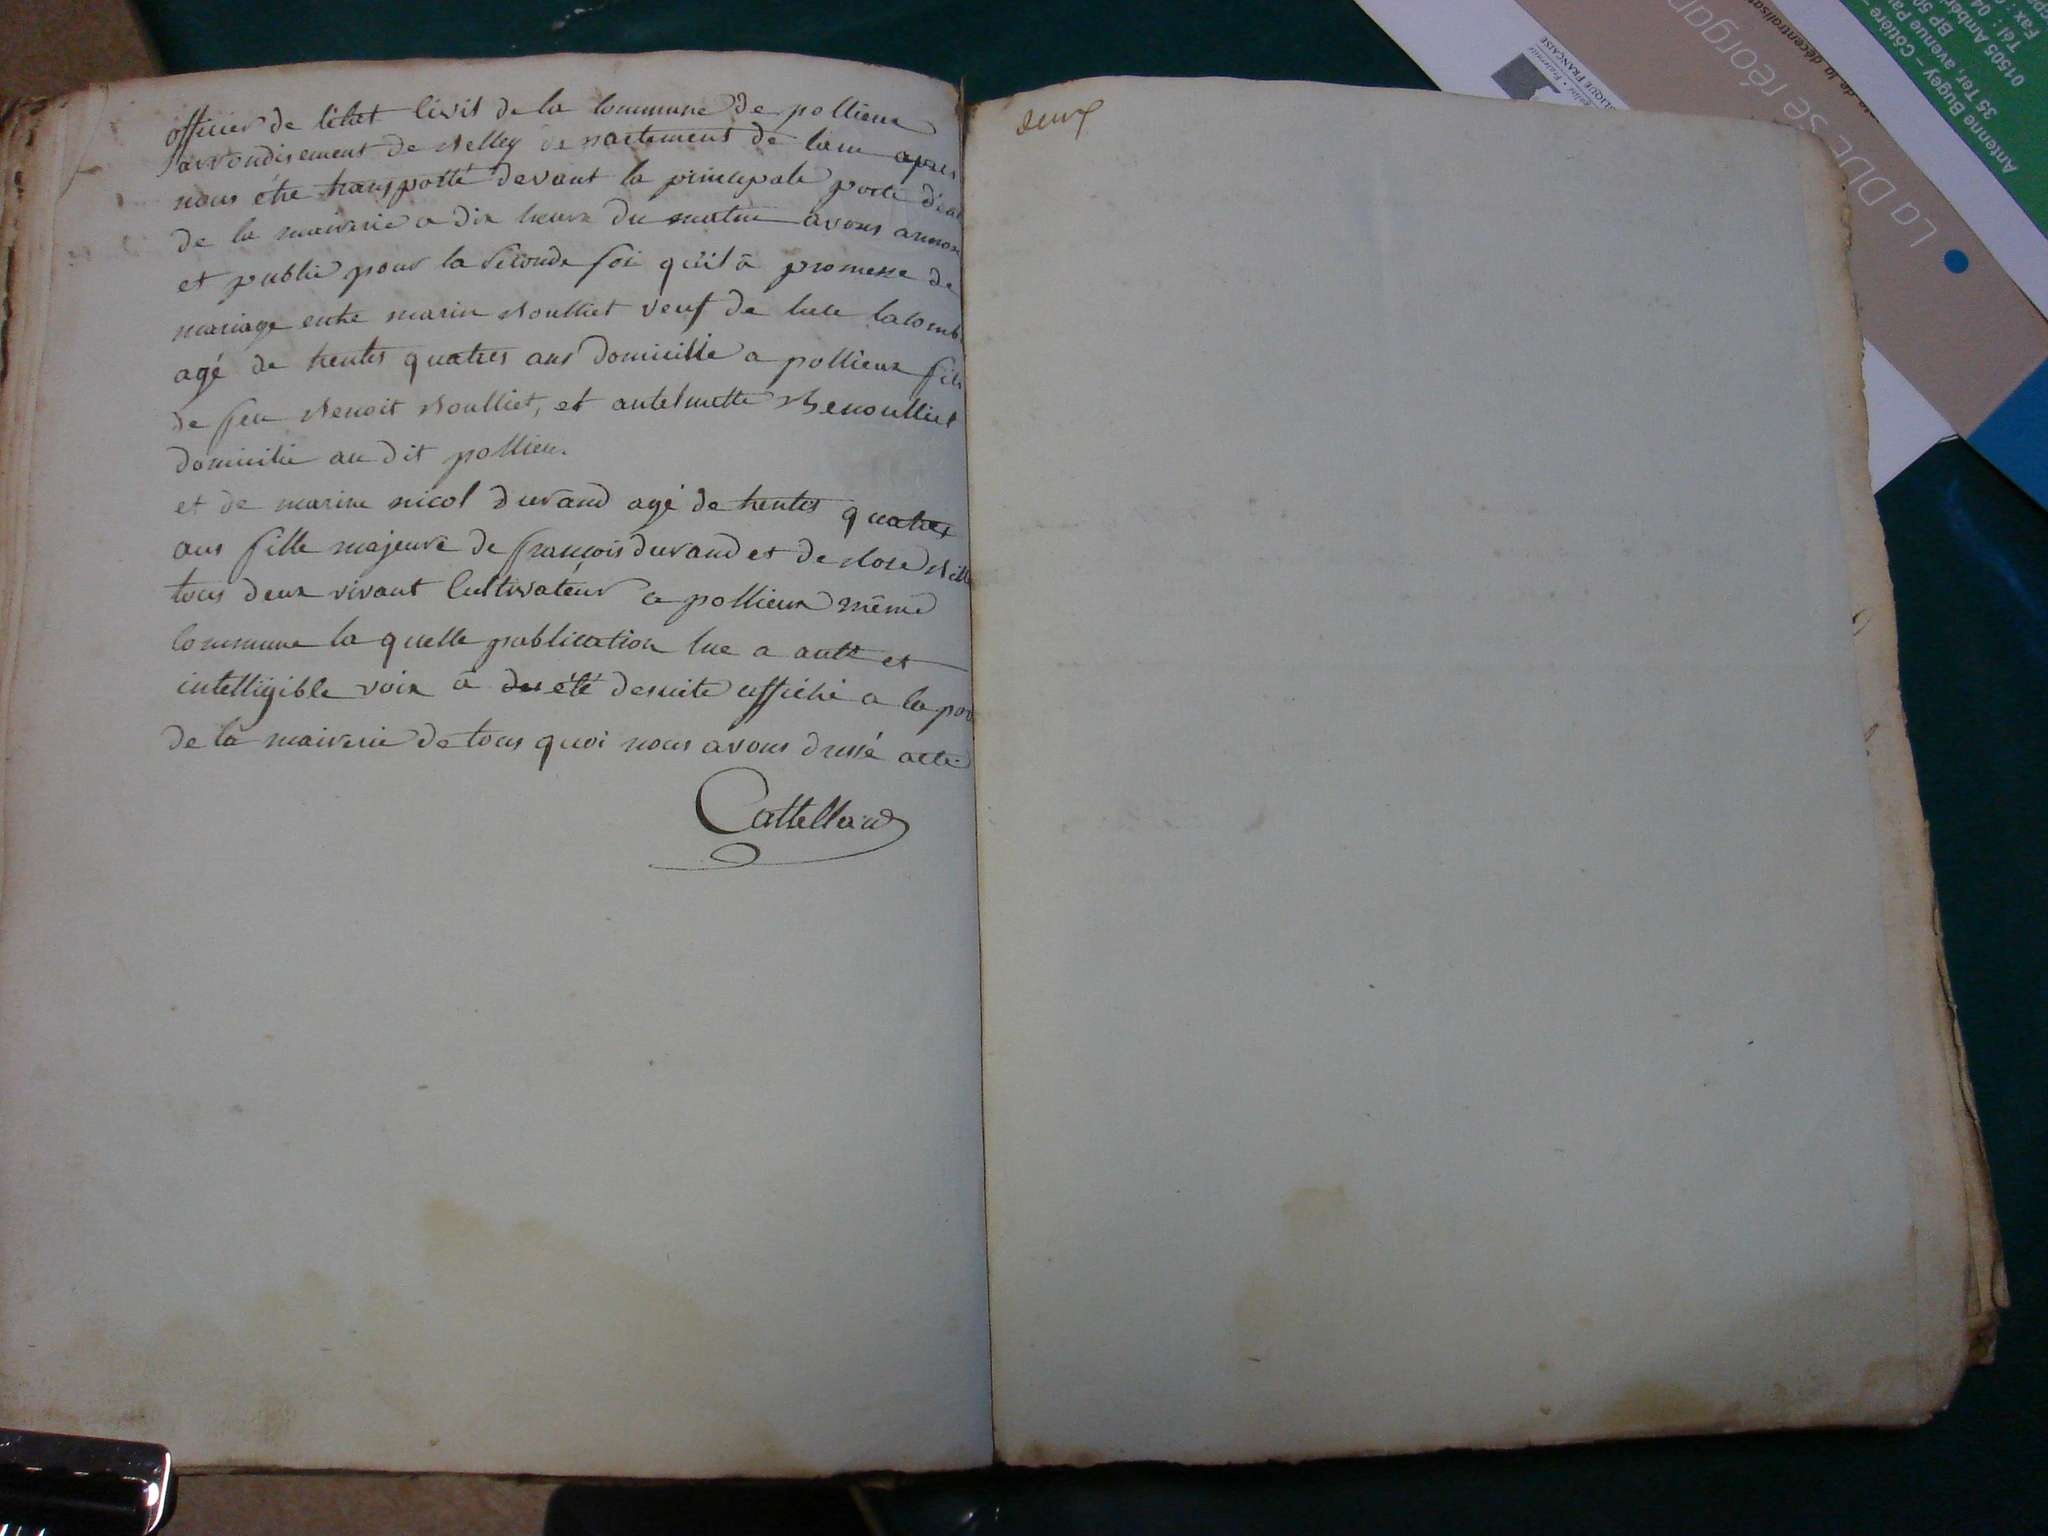 officier de l'état Civil de la Commune de pollieux
arrondisement de Belley departement de lain apres
nous être transporté devant la principale porte d'en
de la mairerie a dix heure du matin avons annon
et publié pour la seconde foi quil â promesse de
mariage entre marin Roulliet veuf de lacomb
agé de trentes quatres ans domicille a pollieux fils
de feu Benoit Roulliet, et antelmette
domicilié au dit pollieu.
et de marine nicol durand agé de trentes quatres
ans fille majeure de françois durand et de Rose
tous deux vivant Cultivateur a pollieux même
Commune la quelle publication lue a aute et
intelligible voix â été desuite affiché a la por
de la mairerie de tous quoi nous avons dressé acte.
Cattelland
deux
La DDE se réorgan
de la décentralisa
Antenne Bugey – Côtière
35 Ter, avenue
BP 50
01505 Ambéri
Tél : 04
Fax :
BLIQUE FRANÇAISE